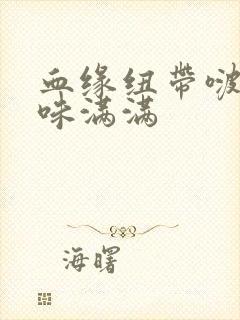 血缘纽带啵
咪满满
海曙